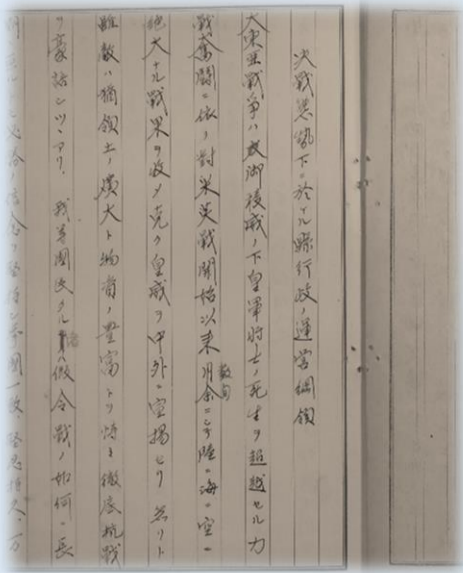 決戰態勢下ニ於ケル縣行政ノ運営綱領
大東亜戦争ハ御稜威ノ下皇軍将士ノ死生ヲ超越セル力
戰奮闘ニ依リ對米英戰開始以来数旬月余ニシテ陸ニ海ニ空ニ
絶大ナル戰果ヲ収メ克ク皇威ヲ中外ニ宣揚セリ 然リト
雖敵ハ猶領土ノ廣大ト物資ノ豊富トヲ恃ミ徹底抗戰
ヲ豪語シツヽアリ、 我等國民タル者ハ假令戰ノ如何ニ長
必 信念ヲ堅持シ挙國一致堅忍持久、万